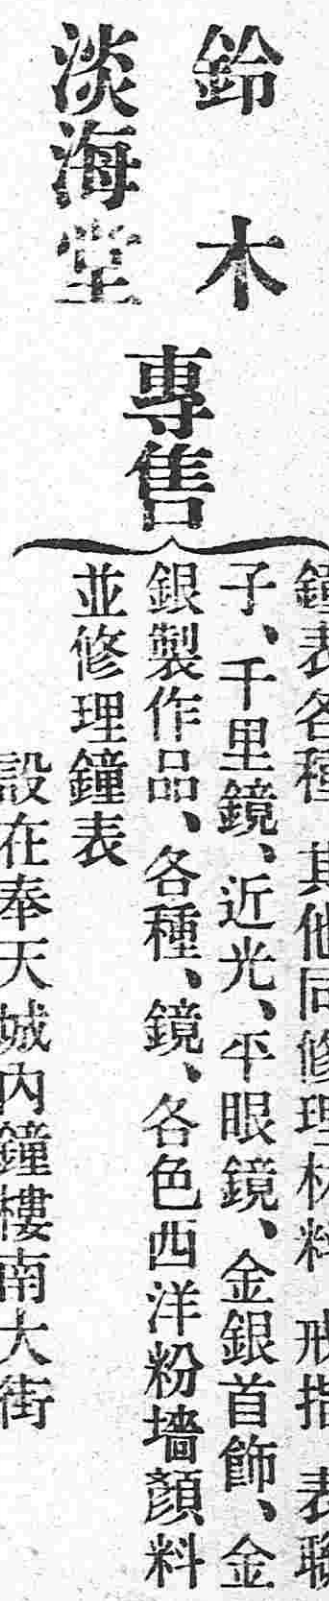 鈴木
淡海堂
專售
鐘表各種 其他同修理材料 戒指 表
子、千里鏡、近光、平眼鏡、金銀首飾、金
銀製作品、各種、鏡、各色西洋粉墻顏料
並修理鐘表
設在奉天城內鐘樓南大街